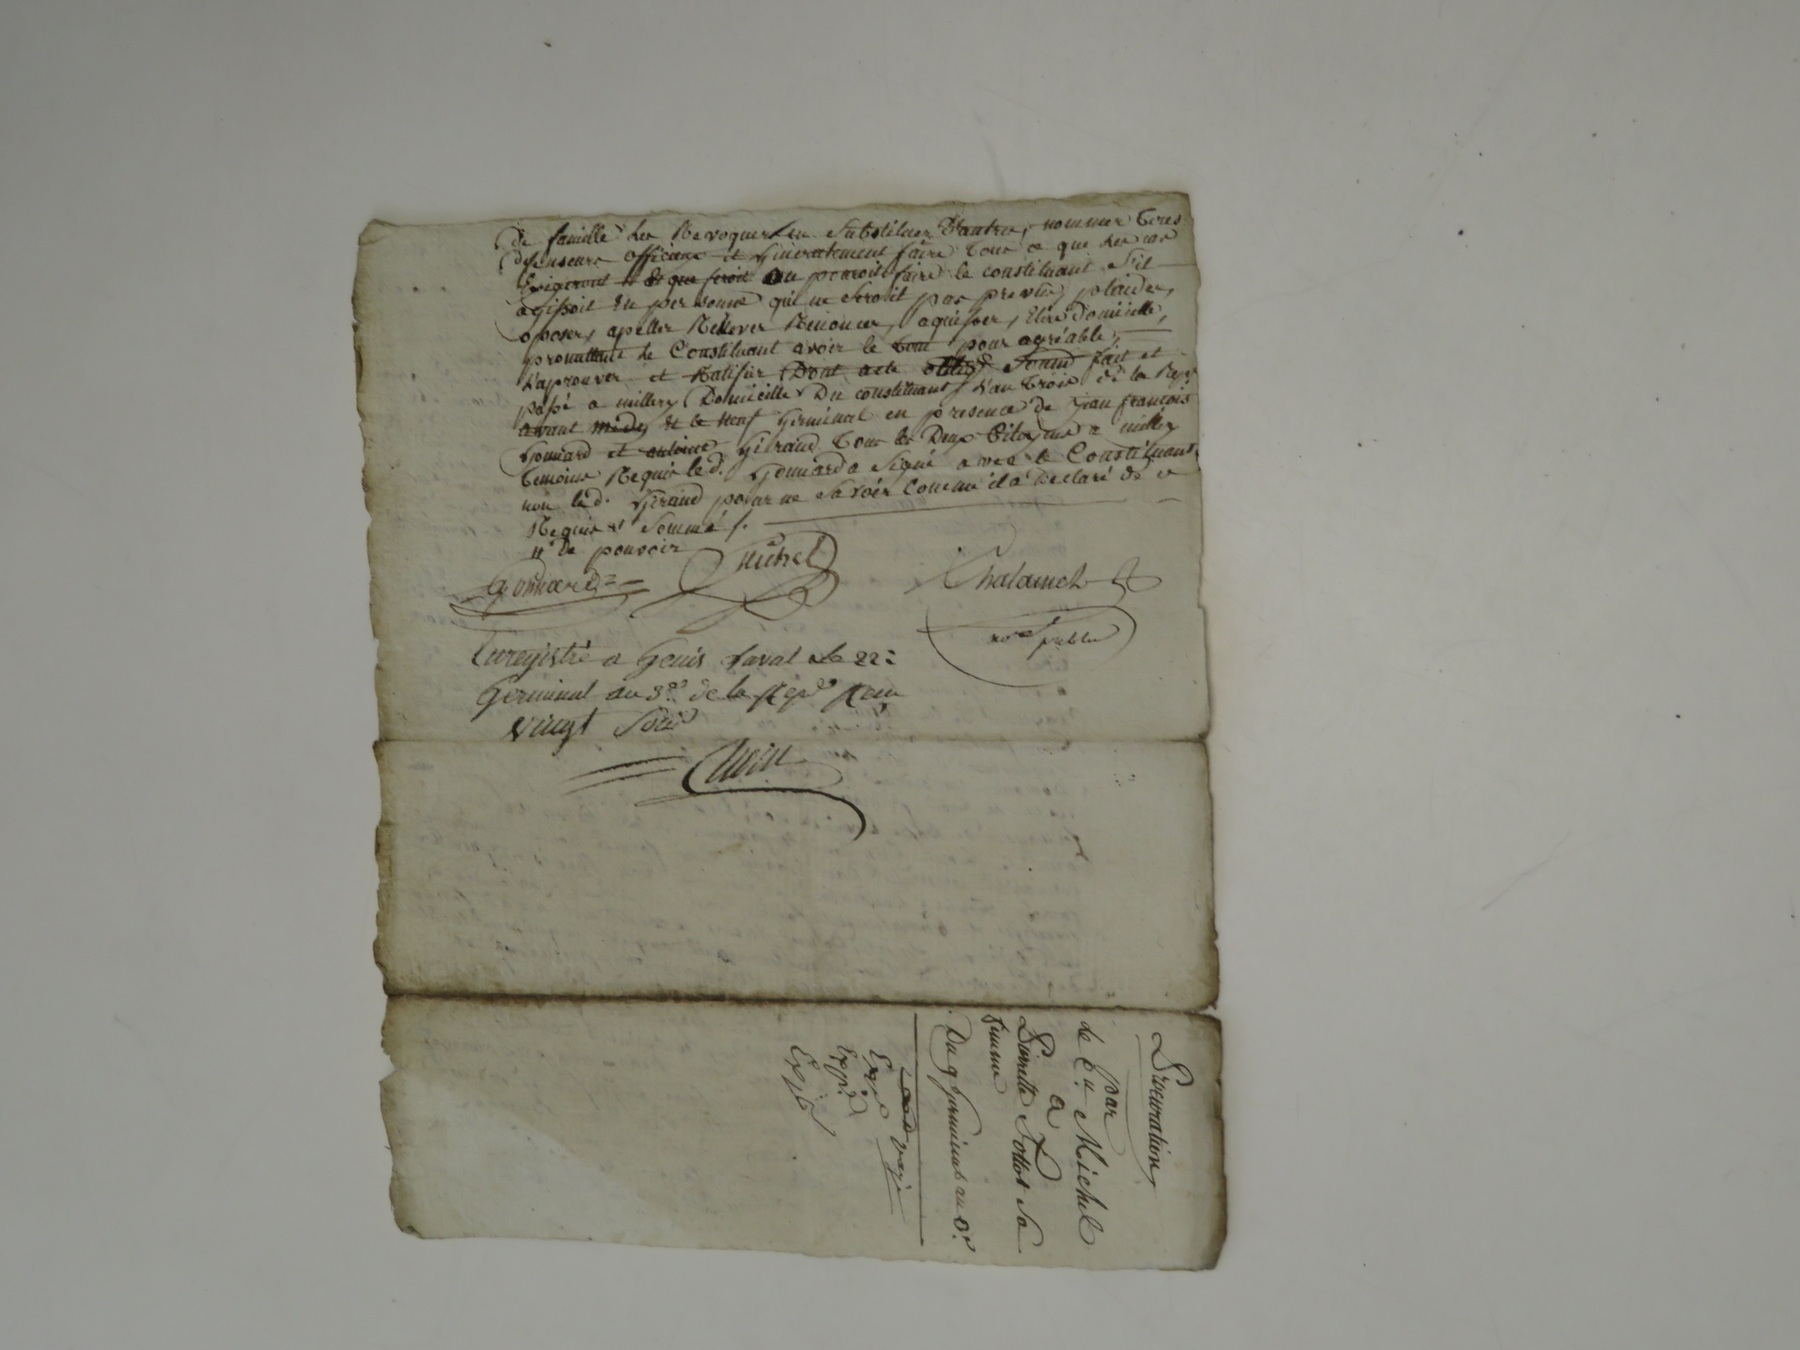 de famille les Revoquer en Substituer D'autres, nommer tous
defenseurs officieux et Généralement faire tous ce que les cas
Exigeront et que feroit ou pouroit faire le constituant s'il
agissoit en personne qui ne seroit pas prevus, plaider,
oposer, apeller Relever Renoncer, aquiesser, Elire domicille,
promettant le Constituant avoir le tout pour agréable,
L'aprouver et Ratifier Dont acte fait et
passé a millery Domicille Du constituant L'an trois de la Rep
avant midy et le neuf Germinal en presence de jean françois
Gonnard et antoine Giraud tous les Deux Citoyens a millery
temoins Requis led. Gonnard a Signé avec le Constituant
non led. Giraud pour ne savoir Comme il a Declaré de ce
Requis et Sommé
de pouvoir
Gonnard Michel Chalamel
no.re public
Enregistré a Genis Laval le 22
Germinal an 3e de la Rep
vingt sous
Procuration
par
le Cn Michel
a
Pierrette Sa
femme
Du 9 germinal an 3e
Expé
Expé
Expé